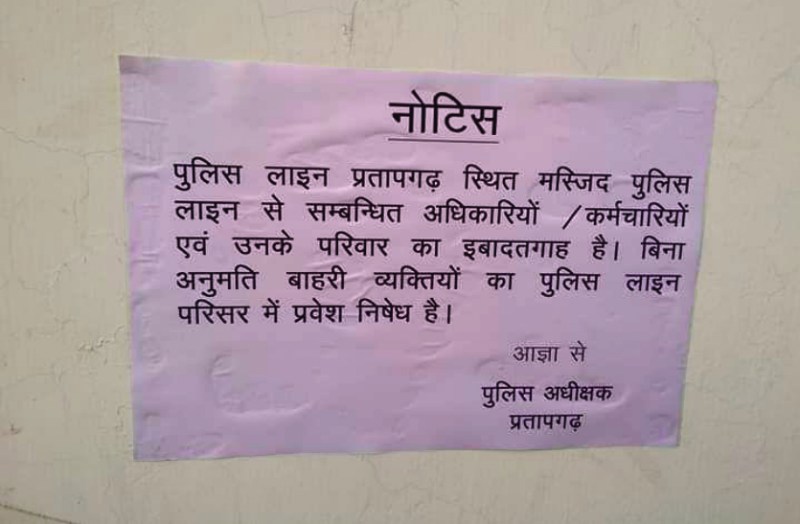 नोटिस
पुलिस लाइन प्रतापगढ़ स्थित मस्जिद पुलिस
लाइन से सम्बन्धित अधिकारियों /कर्मचारियों
एवं उनके परिवार का इबादतगाह है। बिना
अनुमति बाहरी व्यक्तियों का पुलिस लाइन
परिसर में प्रवेश निषेध है।
आज्ञा से
पुलिस अधीक्षक
प्रतापगढ़